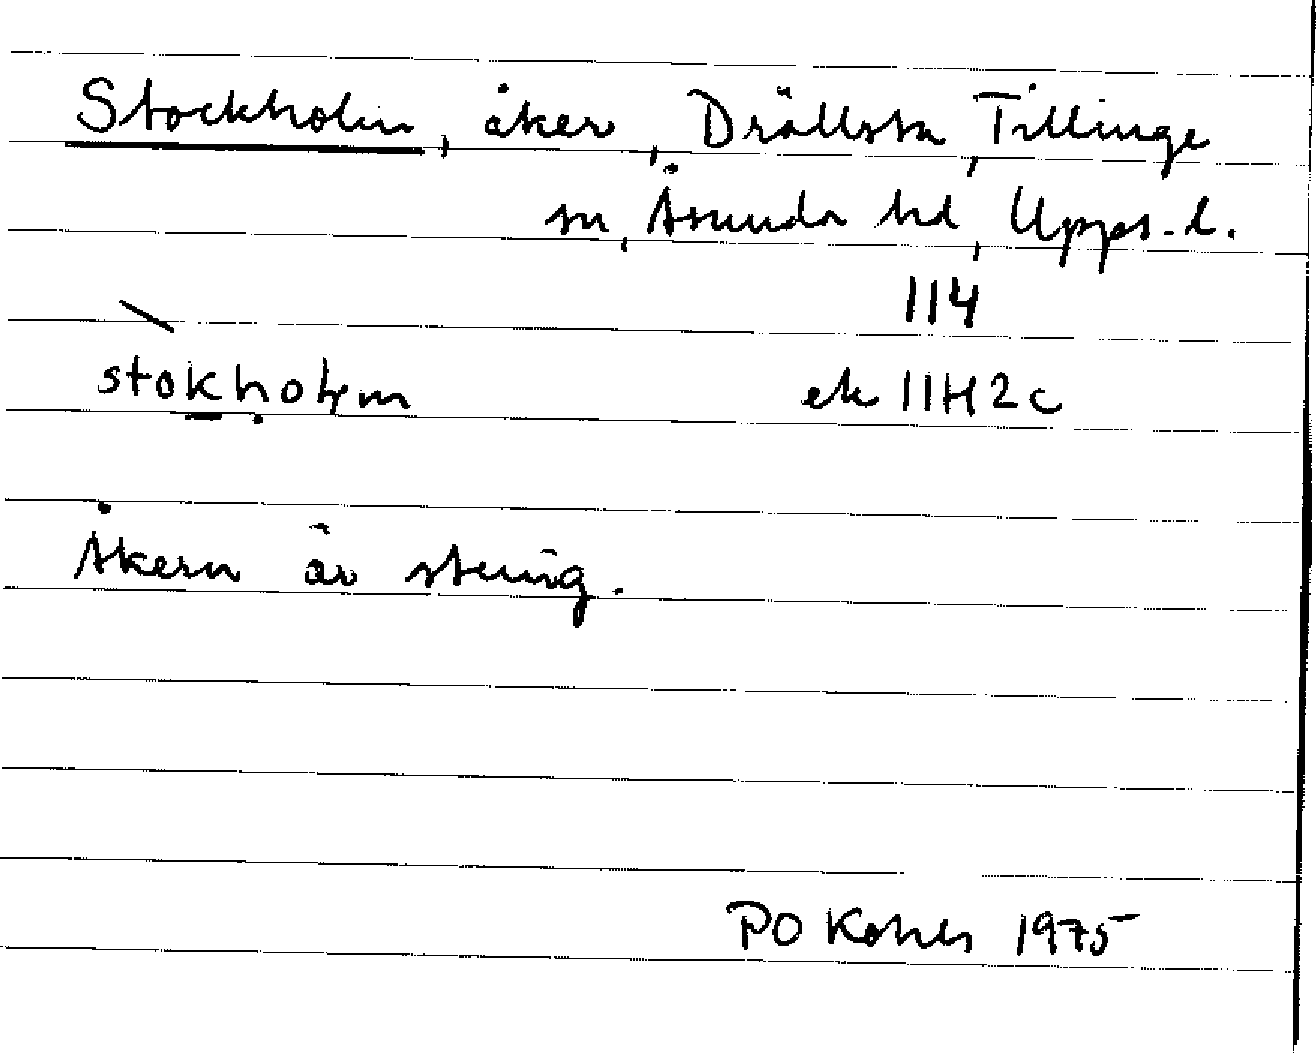 Stockholm, åker, Drällsta, Tillinge
sn, Åsunda hd, Upps. l.
114
stokholm ek 11H2c
Åkern är stenig.
PO 1975